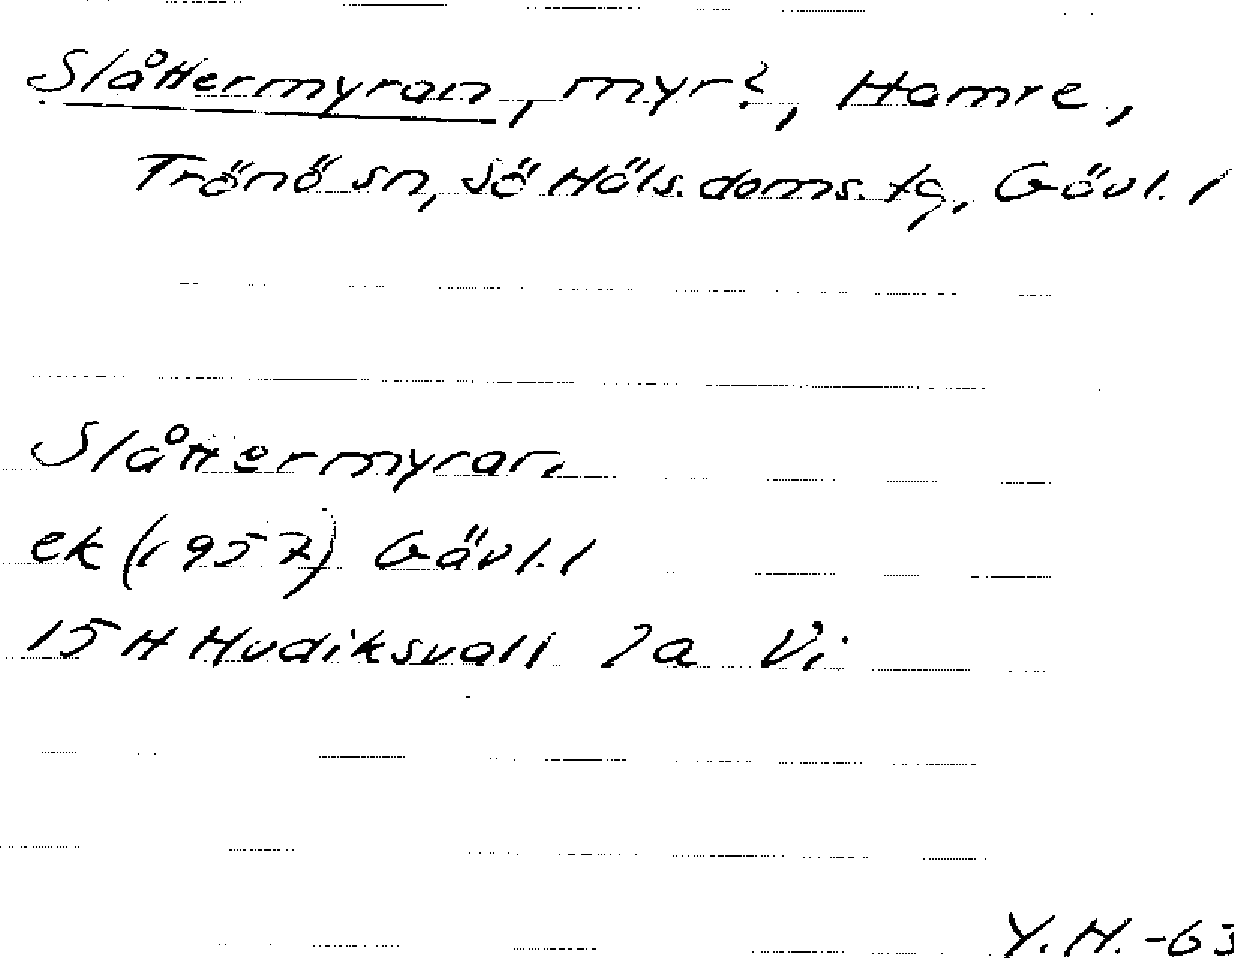 Slåttermyran, myr?, Hamre,
Trönö sn, Sö Häls. doms. tg, Gävl. l
Slåttermyran
ek (1957) Gävl. l
15 H Hudiksvall 2a Vi
Y.H. -63